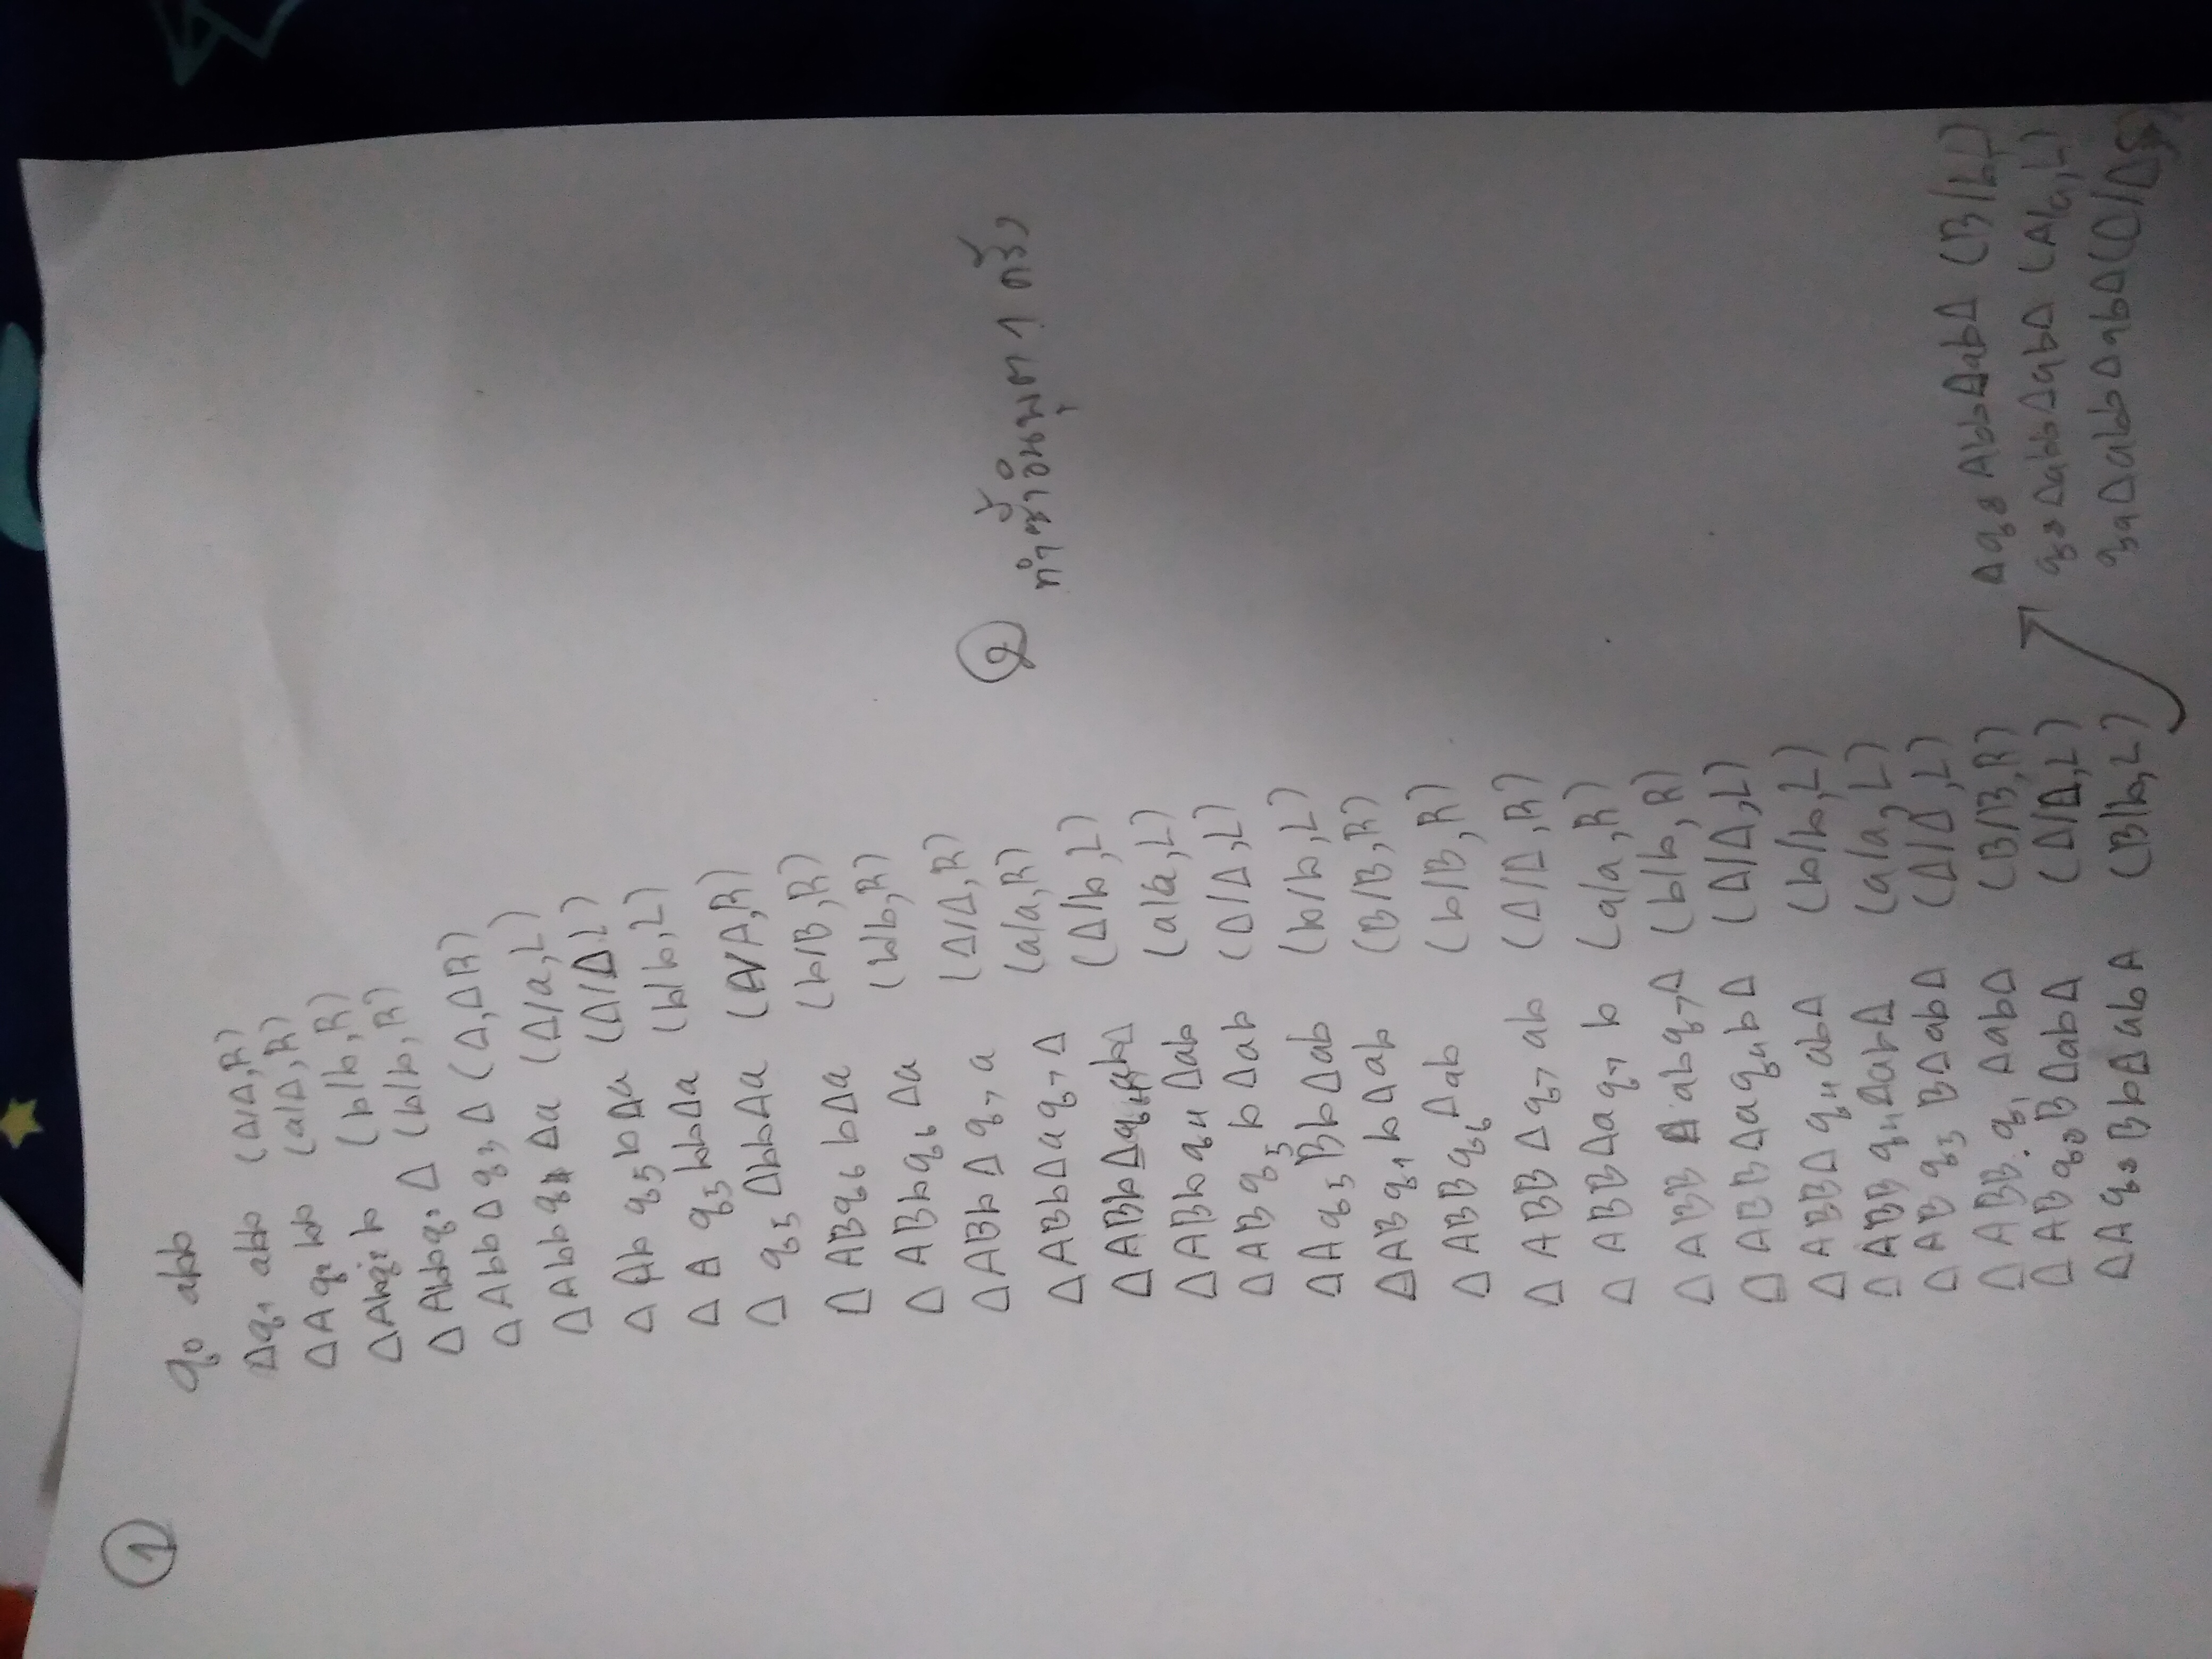 1
q₀ abb
Δq₁ abb (Δ/Δ,R)
ΔA q₂ bb (a/Δ,R)
ΔAbq₂ b (b/b,R)
ΔAbbq₂ Δ (b/b,R)
ΔAbbΔq₃Δ (Δ,ΔR)
ΔAbbq₄ Δa (Δ/a,L)
ΔAb q₅bΔa (Δ/Δ,L)
ΔA q₅bbΔa (b/b,L)
Δ q₅ΔbbΔa (A/A,R)
ΔABq₆bΔa (b/B,R)
ΔABbq₆Δa (b/b,R)
ΔABbΔq₇a (Δ/Δ,R)
ΔABbΔaq₇Δ (a/a,R)
ΔABbΔq₄abΔ (Δ/b,L)
ΔABbq₄Δab (a/a,L)
ΔABq₅bΔab (Δ/Δ,L)
ΔAq₅BbΔab (b/b,L)
ΔABq₁bΔab (B/B,R)
ΔABBq₆Δab (b/B,R)
ΔABBΔq₇ab (Δ/Δ,R)
ΔABBΔaq₇b (a/a,R)
ΔABBΔabq₇Δ (b/b,R)
ΔABBΔaq₄bΔ (Δ/Δ,L)
ΔABBΔq₄abΔ (b/b,L)
ΔABBq₄ΔabΔ (a/a,L)
ΔABq₅BΔabΔ (Δ/Δ,L)
ΔABB.q₁ΔabΔ (B/B,R)
ΔABq₈BΔabΔ (Δ/Δ,L)
ΔAq₈BbΔabΔ (B/b,L)
Δq₈AbbΔabΔ (B/b,L)
q₈ΔabbΔabΔ (A/a,L)
q₉ΔabbΔabΔ(Δ/Δ,S)
2
ทำซ้ำอินพุต 1 ครั้ง